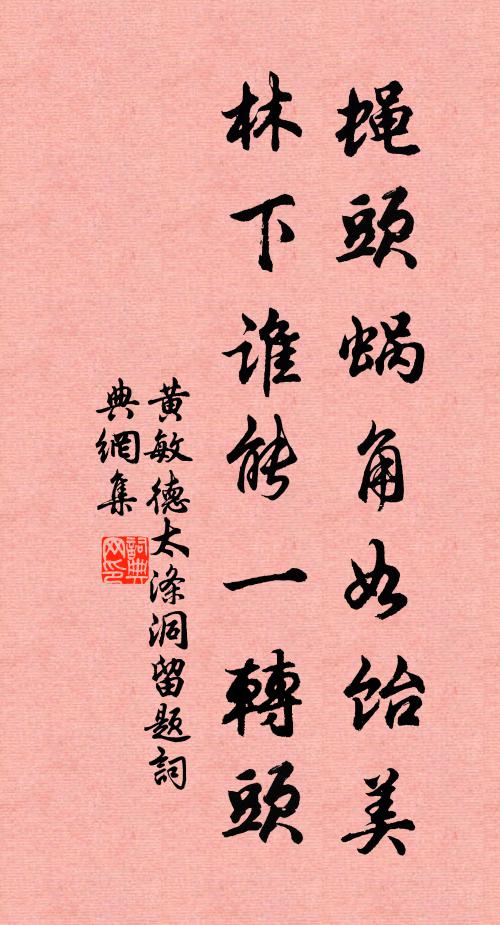 蝇頭蜗角如饴美
林下誰能一轉頭
黃敏德太滌洞留题詞
典網集
詞典
网印